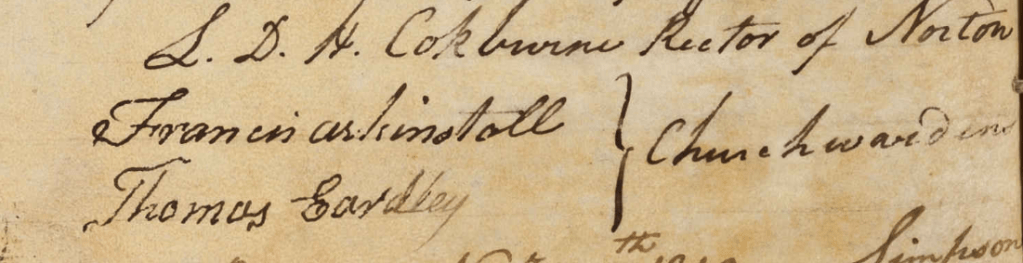 L. D. H. Cokburne Rector of Norton
Francis arkinstall
Thomas Eardley
} Churchwardens
th
Simpson